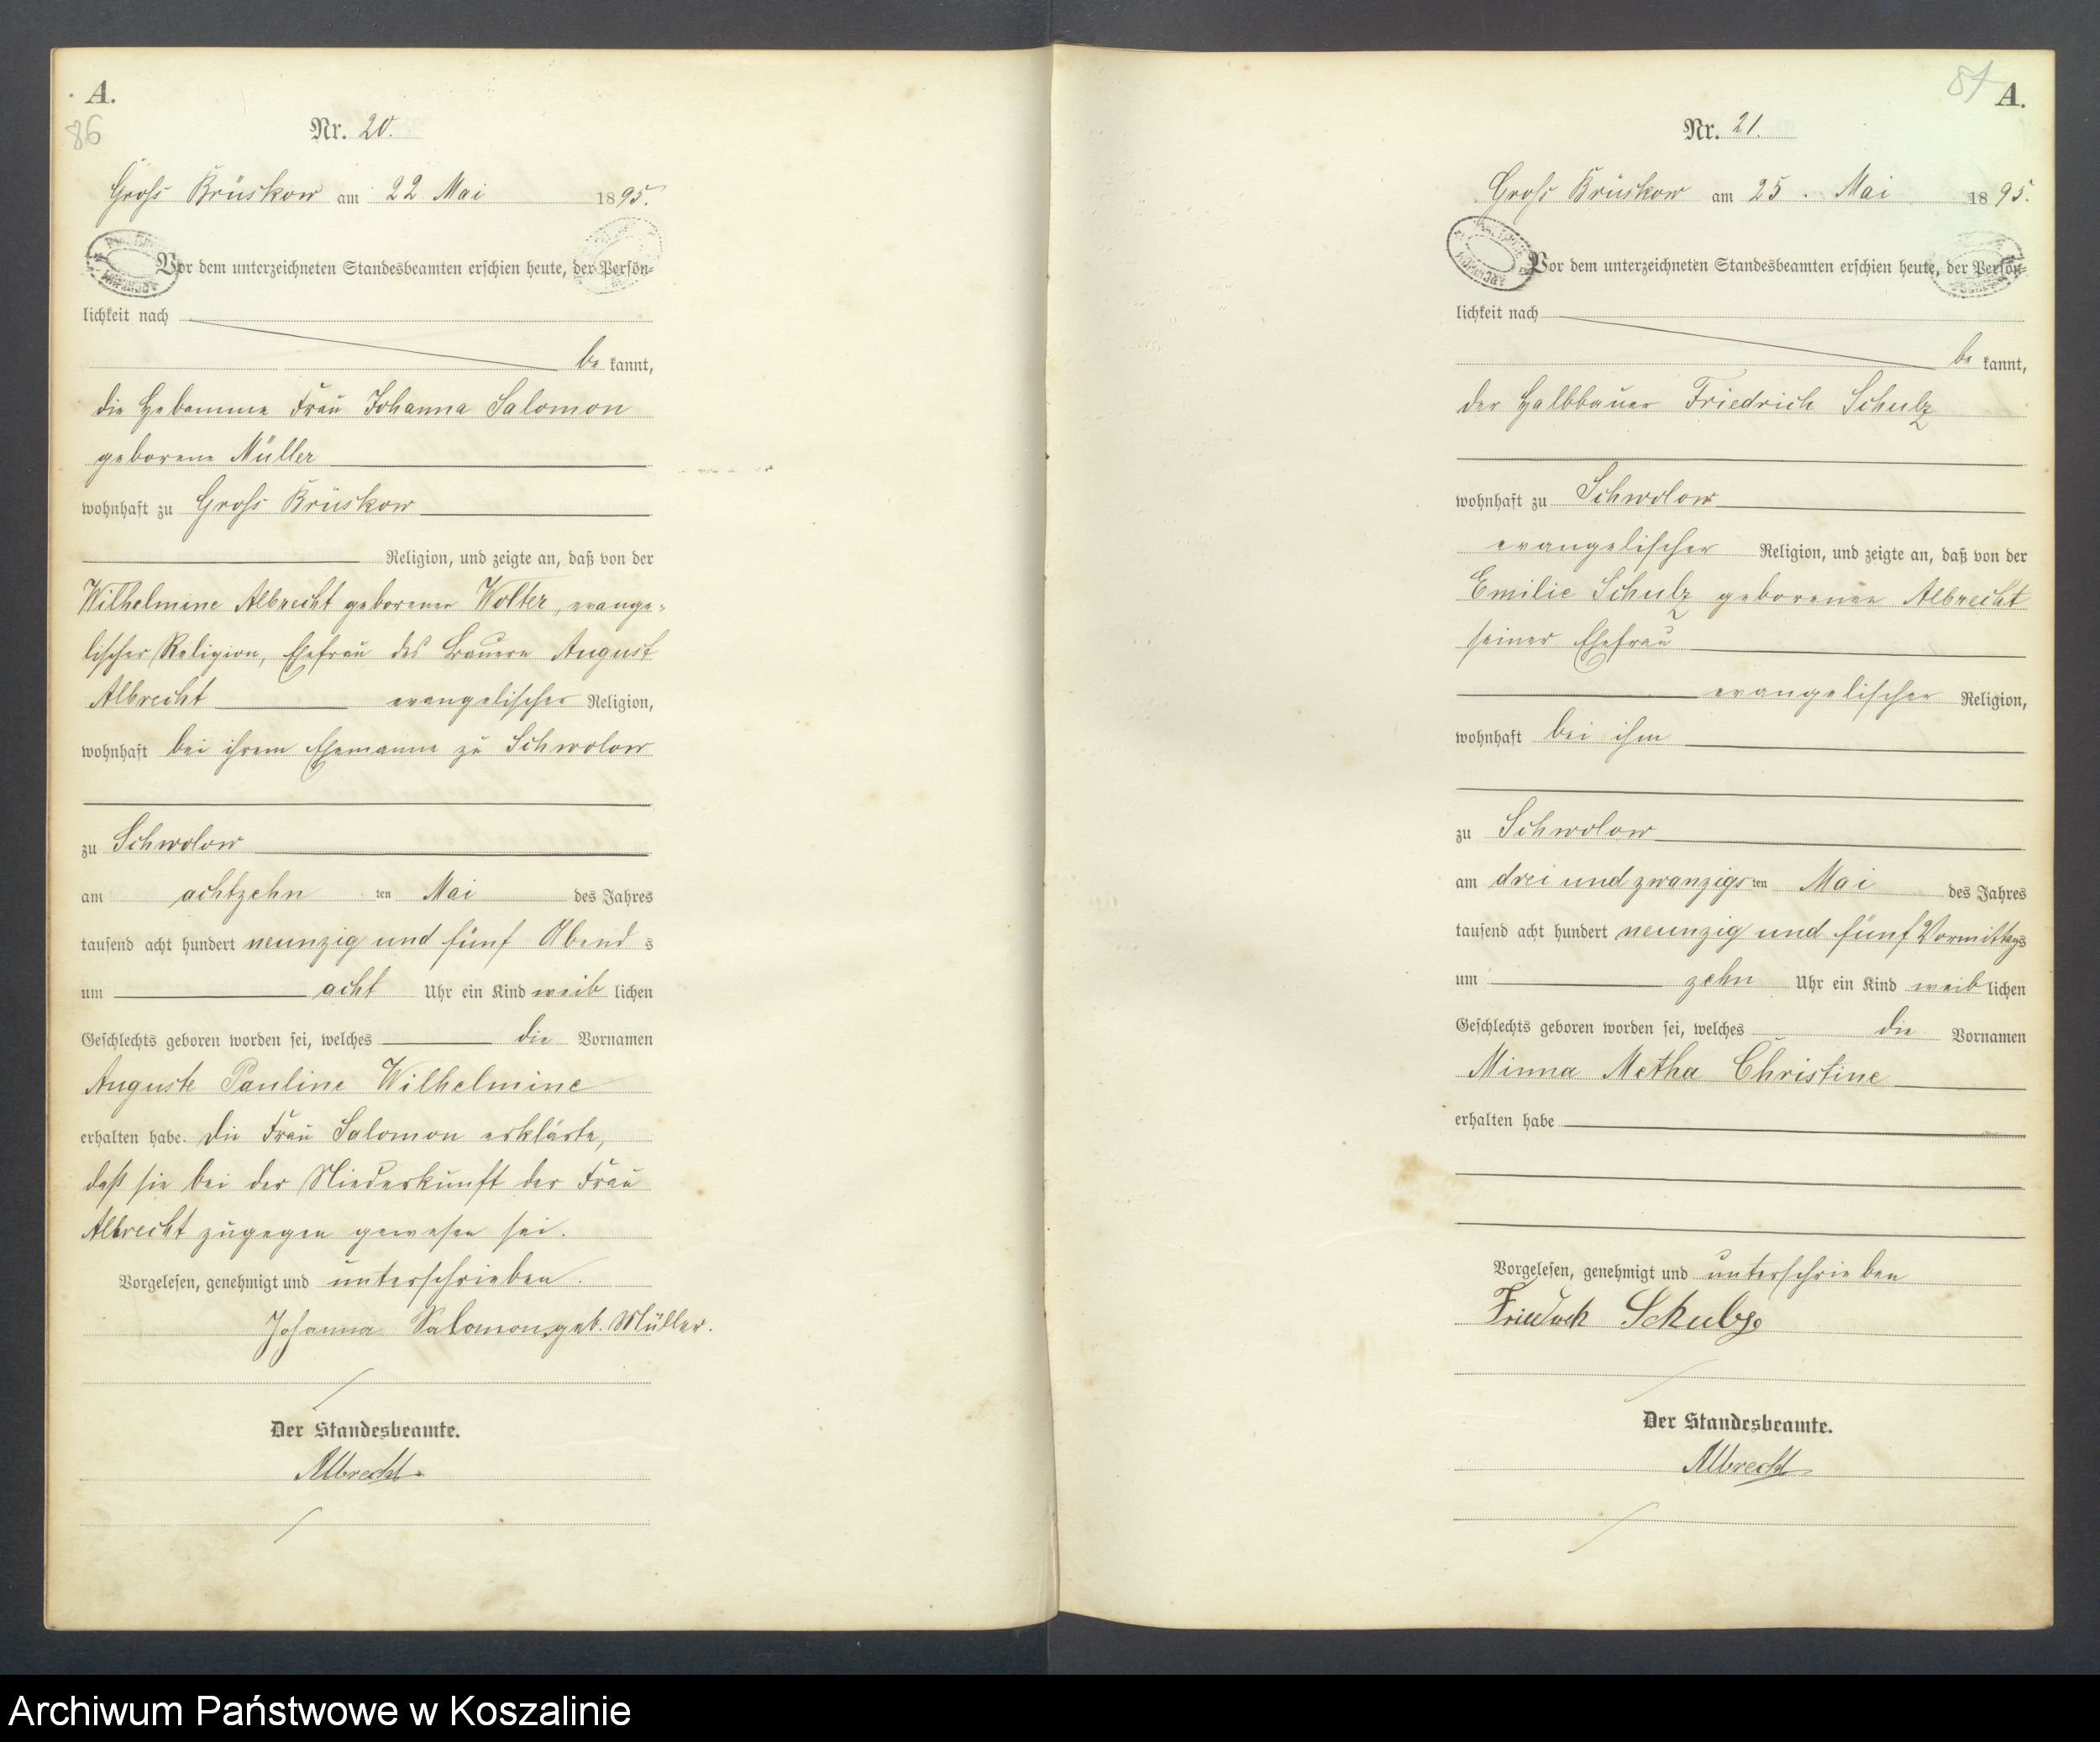 A.
86
Nr. 20.
Groß Brüskow am 22 Mai 1895.
Vor dem unterzeichneten Standesbeamten erschien heute, der Persön=
lichkeit nach
be kannt,
die Hebamme Frau Johanna Salomon
geborene Müller
wohnhaft zu Groß Brüskow
Religion, und zeigte an, daß von der
Wilhelmine Albrecht geborenen Wolter, evange-
lischer Religion, Ehefrau des Bauern August
Albrecht evangelischer Religion,
wohnhaft bei ihrem Ehemanne zu Schwolow
zu Schwolow
am achtzehn ten Mai des Jahres
tausend acht hundert neunzig und fünf Abend s
um acht Uhr ein Kind weib lichen
Geschlechts geboren worden sei, welches die Vornamen
Auguste Pauline Wilhelmine
erhalten habe. Die Frau Salomon erklärte,
daß sie bei der Niederkunft der Frau
Albrecht zugegen gewesen sei.
Vorgelesen, genehmigt und unterschrieben.
Johanna Salomon geb. Müller.
Der Standesbeamte.
Albrecht
87 A.
Nr. 21.
Groß Brüskow am 25. Mai 1895.
Vor dem unterzeichneten Standesbeamten erschien heute, der Persön=
lichkeit nach
be kannt,
der Halbbauer Friedrich Schulz
wohnhaft zu Schwolow
evangelischer Religion, und zeigte an, daß von der
Emilie Schulz geborenen Albrecht
seiner Ehefrau
evangelischer Religion,
wohnhaft bei ihm
zu Schwolow
am drei und zwanzigs ten Mai des Jahres
tausend acht hundert neunzig und fünf Vormittags
um zehn Uhr ein Kind weib lichen
Geschlechts geboren worden sei, welches die Vornamen
Minna Metha Christine
erhalten habe
Vorgelesen, genehmigt und unterschrieben
Friedrich Schulz
Der Standesbeamte.
Albrecht
Archiwum Państwowe w Koszalinie